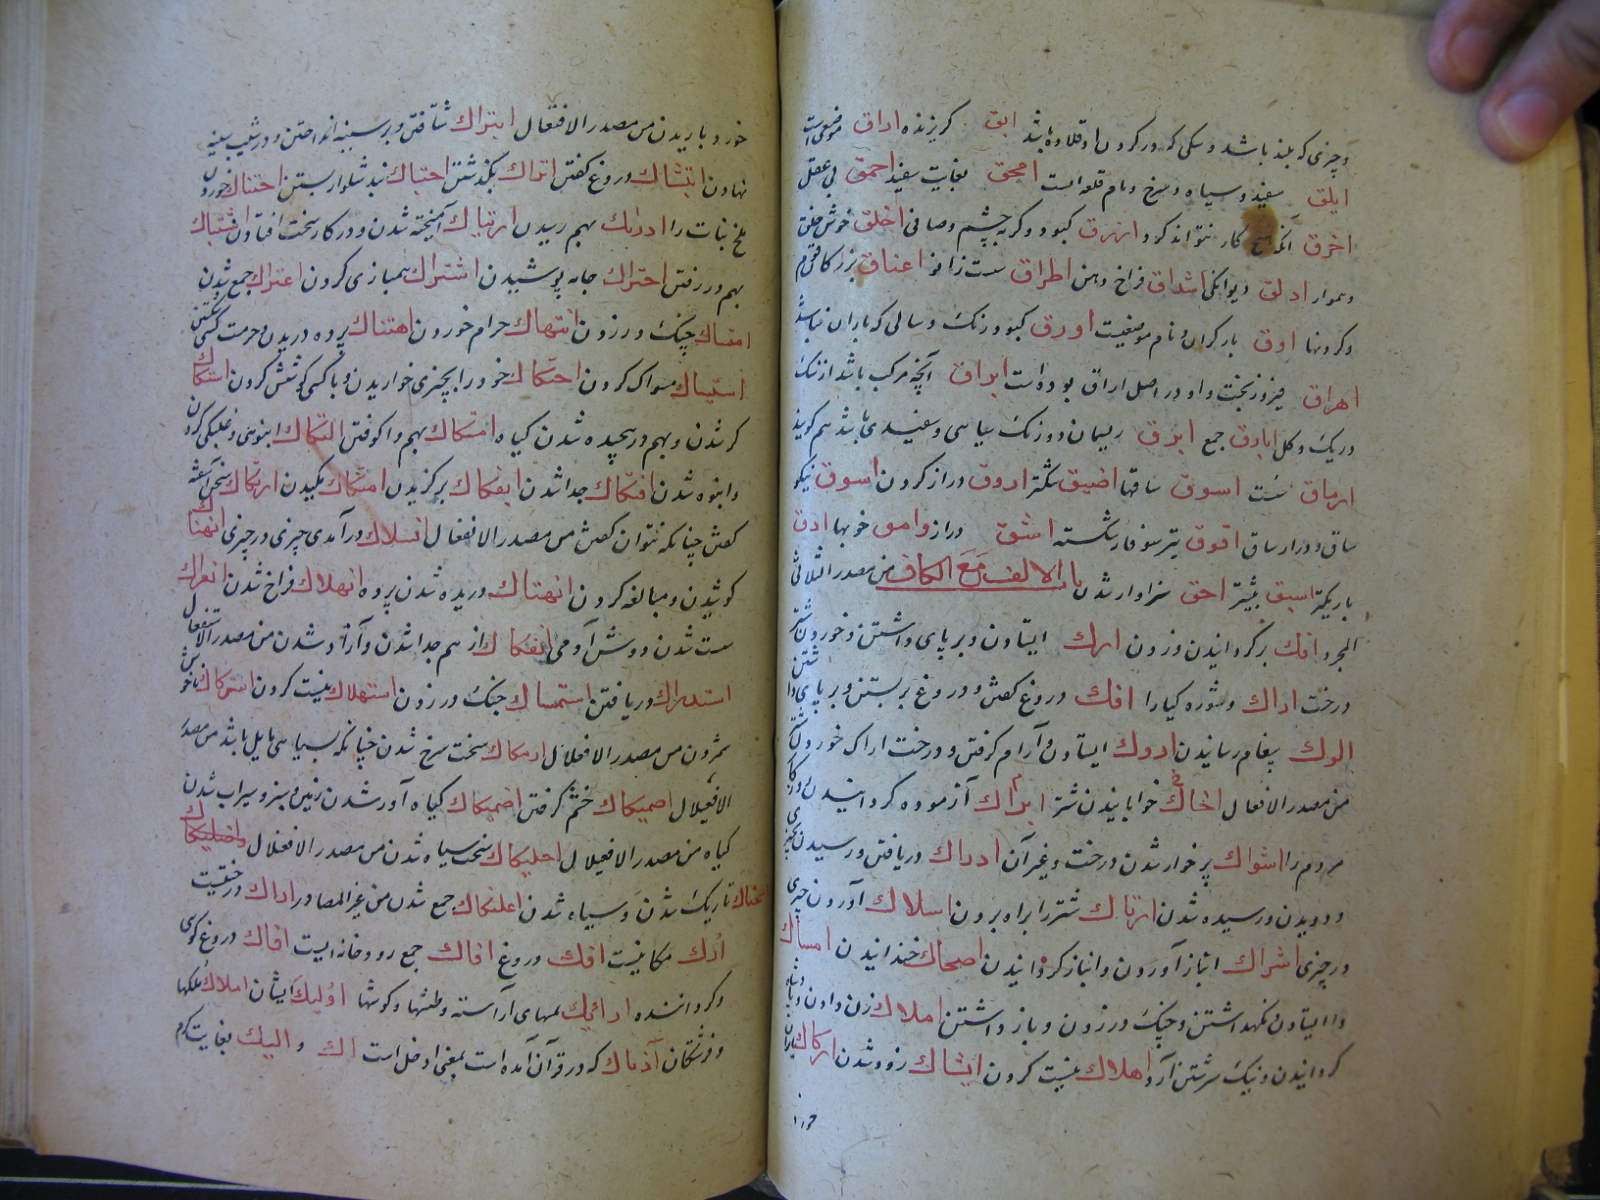 و چیزی که بلند باشد و سکی که در کردن او قلاده باشد ابق کریزنده اداق موضعی است
ابلق سفید و سیاه و سرخ و نام قلعه است امحق بغایت سفید احمق بی عقل
اخرق آنکه هیچ کار نتواند کرد و ازرق کبود و کربه چشم و صافی اخلق خوش خلق
و هموار ادلق دیوانکی اشداق فراخ دهن اطراق سست زانو اعناق بزرکان قوم
و کردنها اوق بار کران و نام موضعیست اورق کبود رنک و سالی که باران نباشد
اهراق فیروزبخت و او در اصل اراق بوده است ابراق آنچه مرکب باشد از سنک
و ریک و کل ابارق جمع ابرق ریسمان دو رنک سیاهی و سفیدی باشد هم کویند
ارماق سست اسوق ساقها اضیق تنکتر اروق دراز کردن اسوق نیکو
ساق و دراز ساق افوق تیر سوفار شکسته اشق دراز وامق خوبها ادق
باریکتر اسبق بیشتر احق سزاوارشدن باب الالف مع الکاف من مصدر الثلاثی
المجرد افک برکردانیدن و زدن ارک ایستادن و بر پای داشتن و خوردن شتر
درخت اراک و شوره کیا را افک دروغ کفتن و دروغ بربستن و بر پای داشتن
الوک پیغام رسانیدن اروک ایستادن و آرام کرفتن و درخت اراک خوردن شتر
من مصدر الافعال اناخاک خوابانیدن شتر ابراک آزموده کردانیدن روزکار
مردم را اشواک پر خوار شدن درخت و غیر آن ادراک دریافتن و رسیدن بچیزی
و دویدن و رسیده شدن ارتاک شتر را براه بردن اسلاک آوردن چیزی
در چیزی اشراک انباز آوردن و انباز کردانیدن اضحاک خندانیدن امساک
وا ایستادن و نکهداشتن و چنک در زدن و باز داشتن املاک زن دادن و پادشاه
کردانیدن و نیک سرشتن آرد اهلاک نیست کردن ایشاک زود شدن ارکاک باران
خورد باریدن من مصدر الافتعال ابتراک شتافتن و بر سینه انداختن و در شیب سینه
نهادن ابتشاک دروغ کفتن اتراک بکذشتن احتباک بند شلوار بستن احتناک خوردن
ملخ نبات را ادراک بهم رسیدن ارتباک آمیخته شدن و در کار سخت افتادن اشتباک
بهم در رفتن احتراک جامه پوشیدن اشتراک همبازی کردن اعتراک جمع شدن
امتساک چنک در زدن انتهاک حرام خوردن اهتناک پرده دریدن و حرمت کسی شکستن
استیاک مسواک کردن احتکاک خود را بچیزی خواریدن و با کسی کوشش کردن استکاک
کر شدن و بهم در پیچیده شدن کیاه امتکاک بهم واکوفتن التکاک انبوهی و غلبکی کردن
و انبوه شدن افتکاک جدا شدن ابفکاک برکزیدن امتکاک مکیدن ارتکاک سخن آشفته
کفتن چنانکه نتوان کفتن من مصدر الانفعال انسلاک درآمدی چیزی در چیزی انهتاک
کوشیدن و مبالغه کردن انهتاک دریده شدن پرده انهلاک فراخ شدن انعراک
سست شدن دوش آدمی انفکاک از هم جدا شدن و آزاد شدن من مصدر الاستفعال
استدراک دریافتن استمساک چنک در زدن استهلاک نیست کردن استرکاک ناخوش
شمردن من مصدر الافعلال ادمکاک سخت سرخ شدن چنانکه بسیاهی مایل باشد من مصدر
الافعیلال اصمیکاک خشم کرفتن اضمیکاک کیاه آور شدن زمین و سبز و سیراب شدن
کیاه من مصدر الافعیلال احلیکاک سخت سیاه شدن من مصدر الافعنلال
تاریک شدن و سیاه شدن اعلنکاک جمع شدن من غیر المصادر اراک درختیست
اُرک مکانیست افک دروغ افاک جمع رودخانه ایست افاک دروغ کوی
و کرداننده ارائیک بمهای آراسته و طشتها و کوشها اولیک ایشان املاک ملکها
و فرشتکان آذناک که در قرآن آمده است بمعنی ادخل است اک و الیک بغایت کرم